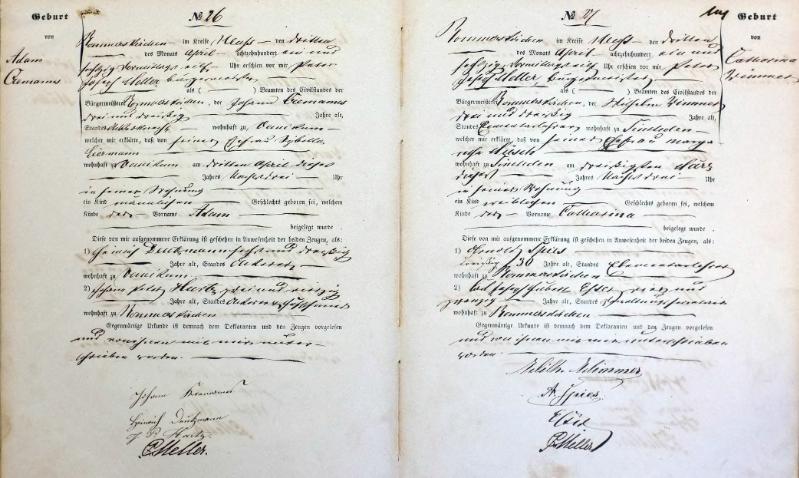 Geburt
von
Adam
Cremanns
№ 26
Rommerskirchen im Kreise Neuß den dritten
des Monats April achtzehnhundert ein und
sechzig Vormittags elf Uhr erschien vor mir Peter
Josef Heller Bürgermeister
als ( ) Beamten des Civilstandes der
Bürgermeisterei Rommerskirchen, der Johann Cremanns
drei und dreißig Jahre alt,
Standes wohnhaft zu Vanikum
welcher mir erklärte, daß von seiner Ehefrau Sybilla
Liermann
wohnhaft zu Vanikum am dritten April dieses
Jahres Nachts drei Uhr
in seiner Wohnung
ein Kind männlichen Geschlechts geboren sei, welchem
Kinde der Vorname Adam
beigelegt wurde.
Diese von mir aufgenommene Erklärung ist geschehen in Anwesenheit der beiden Zeugen, als:
1) Heinrich und dreißig
Jahre alt, Standes Ackerer
wohnhaft zu Vanikum
2) Johann Peter Hartz, und
Jahre alt, Standes Ackerer
wohnhaft zu Rommerskirchen
Gegenwärtige Urkunde ist demnach dem Deklaranten und den Zeugen vorgelesen
und von ihnen wie mir unter-
schrieben worden.
Johann
Heinrich
J P Hartz
P. Heller.
№ 27
Geburt
von
Catharina
Wimmer
Rommerskirchen im Kreise Neuß den dritten
des Monats April achtzehnhundert ein und
sechzig Vormittags elf Uhr erschien vor mir Peter
Josef Heller, Bürgermeister
als ( ) Beamten des Civilstandes der
Bürgermeisterei Rommerskirchen, der Wilhelm Wimmer
drei und dreißig Jahre alt,
Standes wohnhaft zu Sinsteden
welcher mir erklärte, daß von seiner Ehefrau Marga
retha
wohnhaft zu Sinsteden am dreißigsten März
dieses Jahres Nachts drei Uhr
in seiner Wohnung
ein Kind weiblichen Geschlechts geboren sei, welchem
Kinde der Vorname Catharina
beigelegt wurde.
Diese von mir aufgenommene Erklärung ist geschehen in Anwesenheit der beiden Zeugen, als:
1) Arnold Spies
dreißig 30 Jahre alt, Standes
wohnhaft zu Rommerskirchen
2) Josef und
zwanzig Jahre alt, Standes
wohnhaft zu Rommerskirchen.
Gegenwärtige Urkunde ist demnach dem Deklaranten und den Zeugen vorgelesen
und von ihnen wie mir unterschrieben
worden.
Wilh. Wimmer
A. Spies
P. Heller